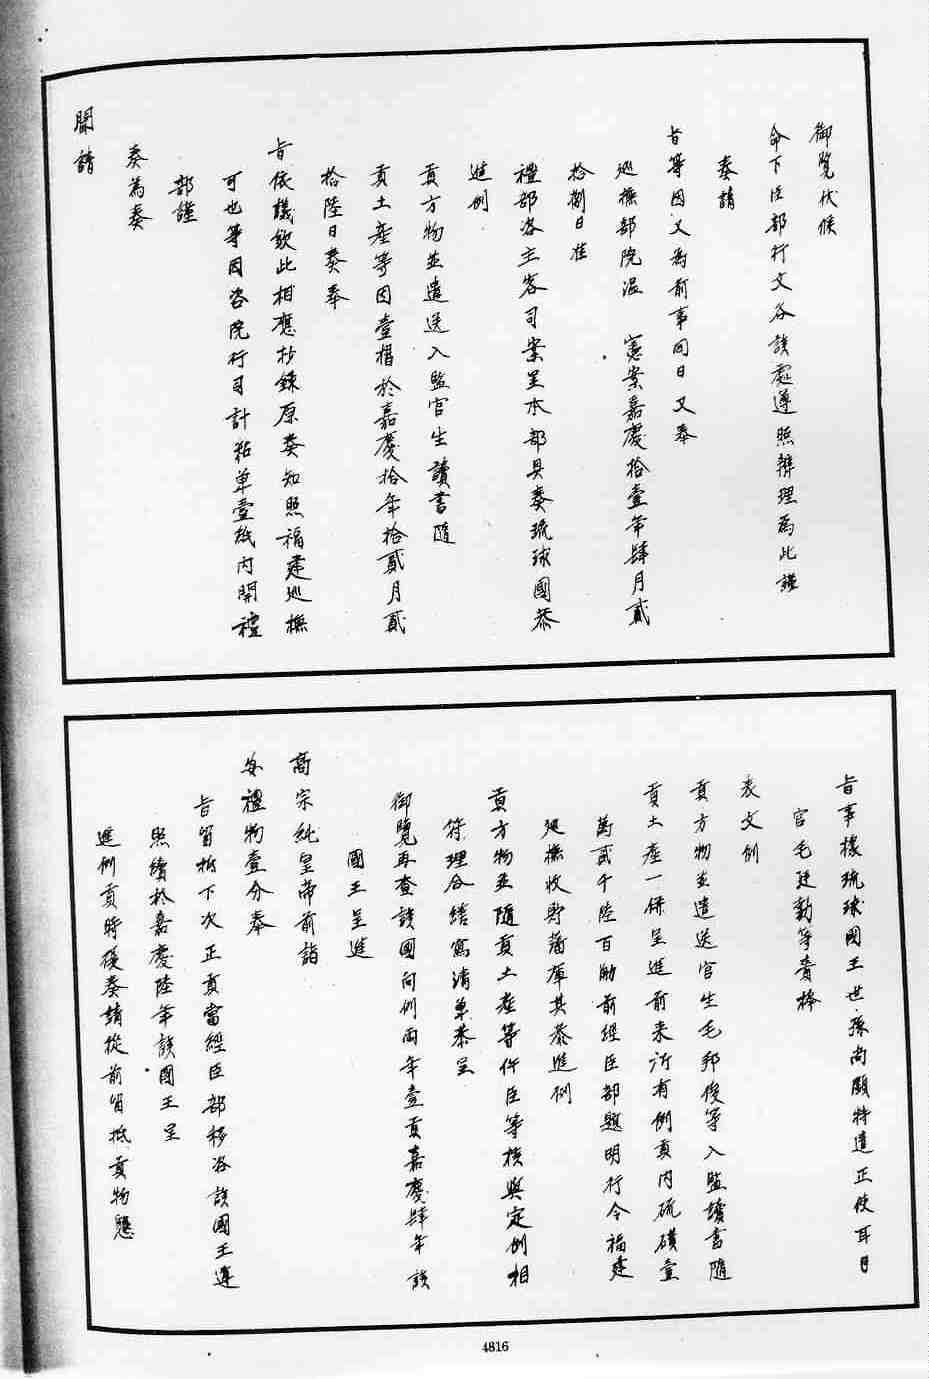 御覧伏候
命下臣部行文各該處遵照辨理爲此謹
奏請
旨等因又爲前事同日又奉
巡撫部院温　憲案嘉慶拾壹年肆月貳
拾捌日准
禮部咨主客司案呈本部具奏琉球國恭
進例
貢方物並遣送入監官生讀書隨
貢土産等因壹摺於嘉慶拾年拾貳月貳
拾陸日奏奉
旨依議欽此相應抄録原奏知照福建巡撫
可也等因咨院行司計粘單壹紙内開禮
部謹
奏爲奏
聞請
旨事據琉球國王世孫尚灝特遣正使耳目
官毛廷勷等賫捧
表文例
貢方物並遣送官生毛邦俊等入監讀書隨
貢土産一併呈進前来所有例貢内硫磺壹
萬貳千陸百觔前經臣部題明行令福建
巡撫收貯藩庫其恭進例
貢方物並隨貢土産等件臣等核與定例相
符理合繕寫清單恭呈
御覧再查該國向例兩年壹貢嘉慶肆年該
國王呈進
高宗純皇帝前詣
安禮物壹分奉
旨留抵下次正貢當經臣部移咨該國王遵
照續於嘉慶陸年該國王呈
進例貢時復奏請從前留抵貢物懇
4816